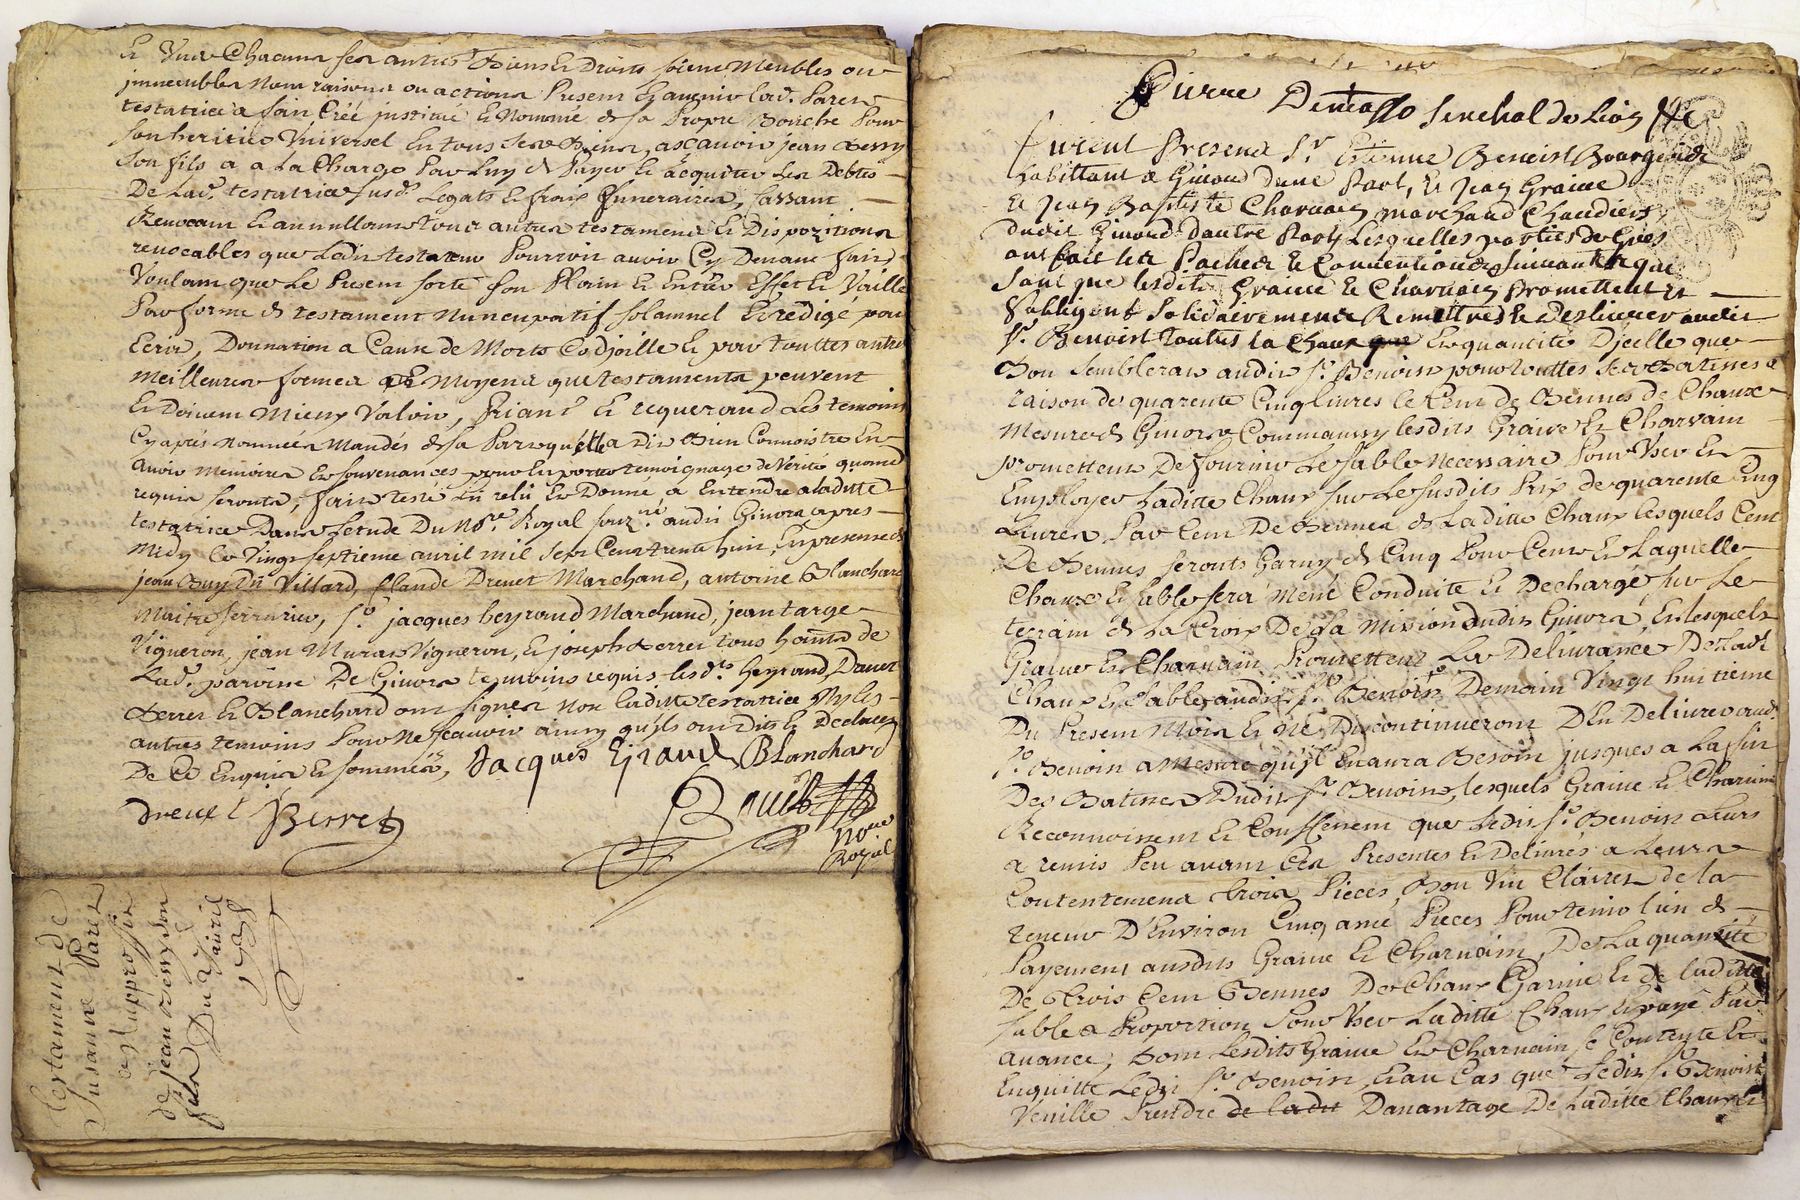 Et Une Chacuns ses autres Biens et Droits soient Meubles ou
immeubles Noms raisons ou actions Present et avenir lad. Paret
testatrice a fait Créé institué et Nommé de sa Propre Bouche Pour
son heritier Universel En tous ses Biens, asçavoir jean
son fils a la Charge Par Luy de Payer et acquiter Les Debtes
De Lad. testatrice susd. Legats et frais funeraires, Cassant
Revocant et annullant tous autres testament et Dispozitions
revocables que Ladit testateur Pourroit avoir Cy Devant fait
Voulant que Le Present sorte son Plain et Entier Effet et Vaille
Par forme de testament Nuncupatif solamnel Et redigé par
Ecrit, Donnation a Cause de Morts Codicille et par touttes autre
meilleures formes et Moyens que testaments peuvent
Et Doivent Mieux Valoir, priant et requerand Les temoins
Cy aprés nommées Mandés de sa Part quélle a Dit Bien Connoistre En
avoir memoires Et souvenances pour En porter temoignage de Verité quand
requis seronts, fait testé lû relû Et Donné, a Entendre a laditte
testatrice Dans Letude Du Nore Royal souzné audit Givors apres
Midy Le Vingt septieme avril mil sept Cent trente huit, En presence de
jean Buy Dû Villard, Claude Drevet Marchand, antoine Blanchard
Maitre serrurier, sr. jacques heyraud Marchand, jean targe
Vigneron, jean Muras Vigneron, et joseph Berret tous hants de
Lad. parroisse De Givors temoins requis lesdts heyraud, Drevet
Berret et Blanchard ont signés Non Laditte testatrice Ny les
autres temoins Pour Ne sçauoir ainsy quils ont Dits et Declarez
De Ce Enquis et sommés, Jacques Eiraud Blanchard
Drevet Berret
Nore
Royal
testament de
Susanne Paret
a suppression
de jean
fils
Du 27 avril
1738
Pierre Demasso senechal de Lion &c
furent Present sr. Estienne Benoist Bourgeois
habittant a Givors Dune Part, et jean Graive
et jean Baptiste Charvain marchand Chaudiers
dudit Givors Dautre Part, Lesquelles parties de Grés
ont fait les Paches et Conventions suivantes que
sont que lesdits Graive et Charvain promettent et
sobligent solidairement Remettre et Deslivrer audit
sr. Benoist toutes la Chaux En quantité Dicelle que
Bon semblerat audit sr. Benoist pour touttes ses Batisses a
raison de quarente Cinq livres le Cent de Bennes de Chaux
mesure de Givors Comme aussy lesdits Graive et Charvain
promettent De fournir Le sable necessaire Pour User Et
Employer Laditte Chaux sur Le susdits Prix de quarente Cinq
Livres Par Cent De Bennes de Laditte Chaux lesquels Cent
De Bennes seronts Garny de Cinq Pour Cent Et Laquelle
Chaux et sable sera Mené Conduite et Dechargé sur Le
terrain de La Croix De La Mission dudit Givors, Et Lesquels
Graive Et Charvain Promettent La Delivrance De Lad.
Chaux et sable audit sr. Benoist Demain Vingt huitieme
Du Present Mois et Ne Discontinueront D'En Delivrer aud.
sr. Benoist a Mesure qu'jl En aura Besoin jusques a La fin
Des Batisses Dudit sr. Benoist, lesquels Graive et Charvain
Reconnoissent et Confessent que Ledit sr. Benoist Leurs
a remis Peu avant Ces Presentes et Delivrés a Leurs
Contentement trois Pieces Bon Vin Clairet de la
teneur D'Environ Cinq ané Pieces Pour tenir lieu de
Payement ausdits Graive et Charvain, De La quantité
De trois Cent Bennes De Chaux Garnie et de Laditte
sable a Proportion Pour User Laditte Chaux et payé Par
avance, Dont Lesdits Graive Et Charvain se Contente Et
Enquitte Ledit sr. Benoist, Et au Cas que Ledit sr. Benoist
Veuille Prendre de ladit Davantage De Laditte Chaux et